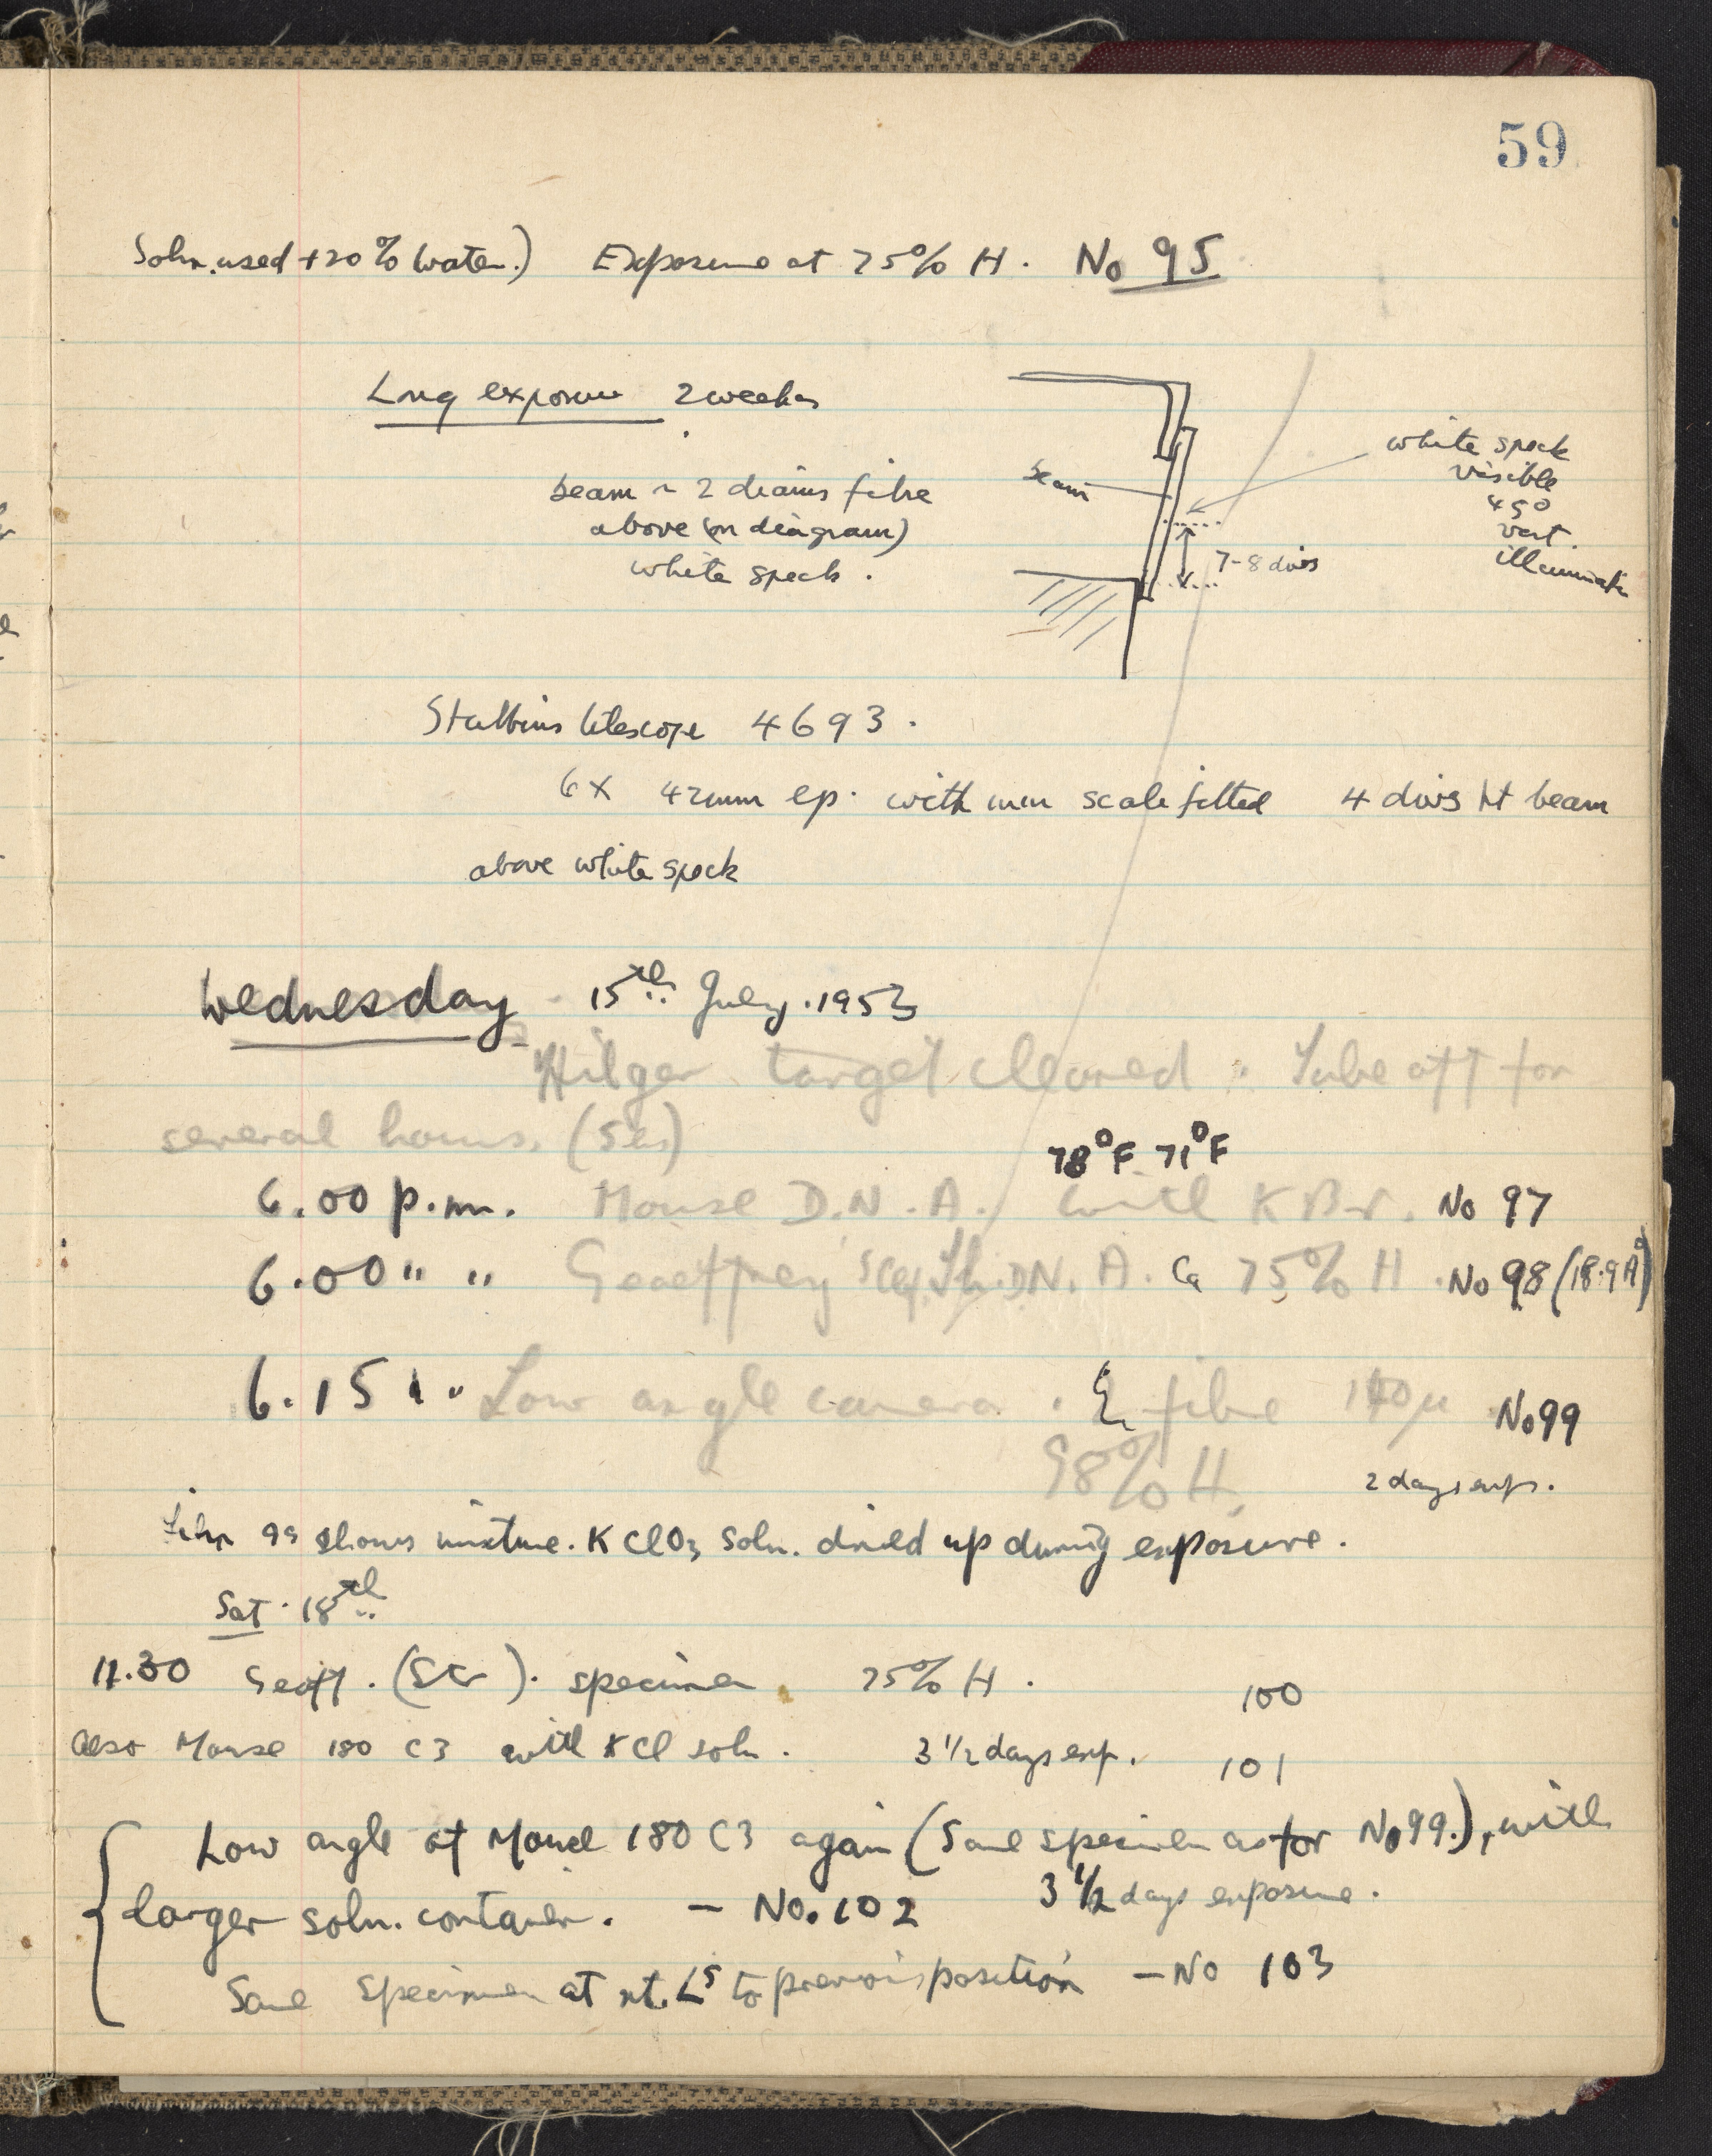 59
Soln. used + 20% water.) Exposure at 75% H. No 95
Long exposure 2 weeks
beam ~ 2 diams fibre
above (on diagram)
white speck.
beam
white speck
visible
45°
vert.
illumination
7-8 divs
Stubbins telescope 4693.
6X 42mm ep. with mm scale fitted 4 divs ht beam
above white speck
Wednesday 15th July. 1953
Hilger target cleaned. Tube off for
several hours. (5hrs)
78°F 71°F
6.00 p.m. Mouse D.N.A. with KBr. No 97
6.00 " " Geoffrey's D.N.A. 75% H. No 98 (18.9Å)
6.15 " " Low angle camera. fibre 140µ No 99
98% H.
2 days exp.
Film 99 shows mixture. KClO3 Soln. dried up during exposure.
Sat. 18th
11.30 Geoff. (Str). specimen 75% H. 100
Also Mouse 180 C3 with KCl soln. 3 1/2 days exp. 101
Low angle of Mouse 180 C3 again (Same specimen as for No 99.), with
larger soln. container. – No. 102 3 1/2 days exposure.
Same specimen at rt. ∠s to previous position – No 103